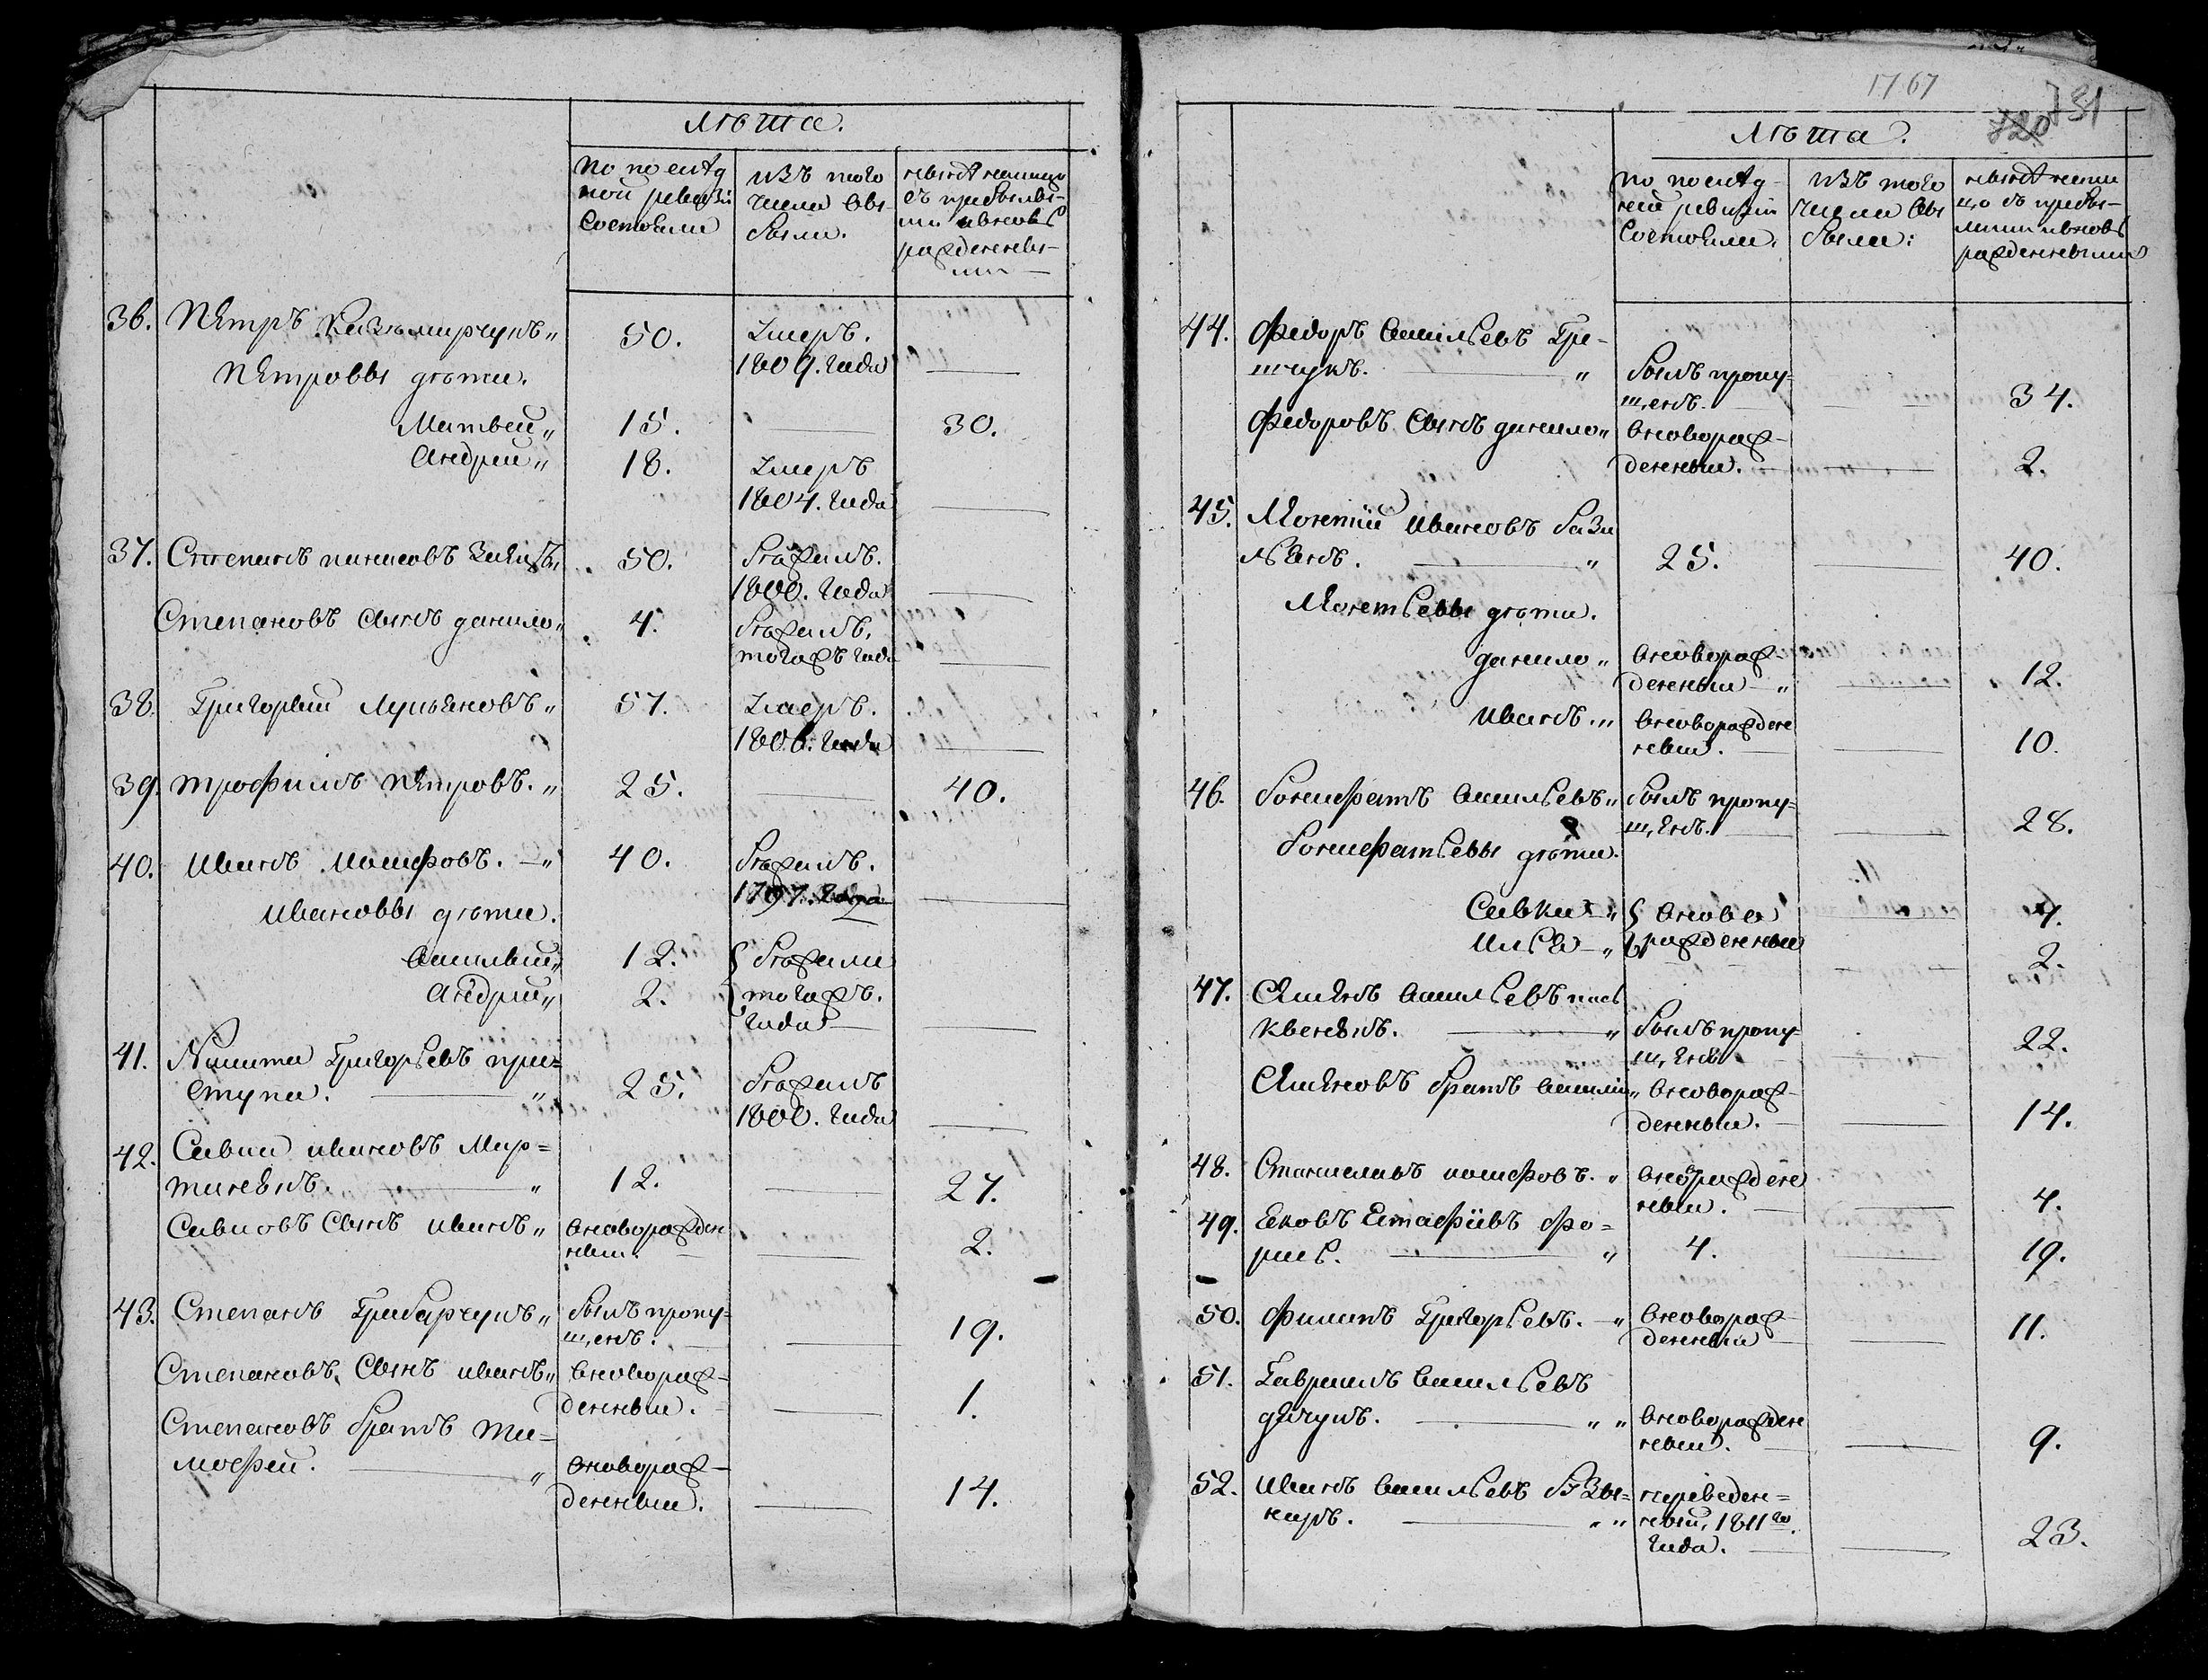 Лѣта.
По последней ревизіи Состояли
изъ того числа выбыли.
ныне налицо съ прибылыми и вновь рожденными
36. Петръ Казимирчукъ „ 50. Умеръ.
1809. года —
Петровы дѣти.
Матвей „ 15. — 30.
Андрій „ 18. Умеръ
1804. года —
37. Степанъ Заяцъ „ 50. бѣжалъ.
1800. года —
Степановъ Сынъ данило „ 4. бѣжалъ.
тогожъ года —
38. Григорій Лукьяновъ „ 57. Умеръ.
1806. года —
39. Трофимъ Петровъ. „ 25. — 40.
40. Иванъ иосифовъ. — „ 40. бѣжалъ.
1797. года —
Ивановы дѣти.
василій „ 12. бѣжали
Андрій „ 2. тогожъ.
года —
41. Никита Григорьевъ при=
ступа. — „ 25. бѣжалъ
1800. года —
42. Савка ивановъ Мар=
тинюкъ. — „ 12. — 27.
Савковъ Сынъ иванъ „ вноворожден
ный. — 2.
43. Степанъ Грабарчукъ „ былъ пропу=
щенъ. — 19.
Степановъ Сынъ иванъ „ вноворож=
денный. — 1.
Степановъ братъ Ти=
мофей. — „ вноворож=
денный. — 14.
1767
720 731
Лѣта.
по послед=
ней ревизіи
Состояли.
изъ того
числа вы
были:
ныне нали
цо съ прибы=
лыми и вновь
рожденными
44. Федоръ васильевъ Гри=
щукъ. — „ былъ пропу=
щенъ. — 34.
Федоровъ Сынъ данило „ вноворож=
денный. — 2.
45. Леонтій ивановъ
— „ 25. — 40.
Леонтьевы дѣти.
данило „ вноворож=
денный — „ — 12.
иванъ. „ вноворожден
ный. — 10.
46. Бонифатъ васильевъ „ былъ пропу=
щенъ. — 28.
Бонифатьевы дѣти.
Савка — „ вново — 4.
илья — „ рожденные — 2.
47. Семенъ васильевъ
— „ былъ пропу=
щенъ — 22.
Семеновъ братъ василій „ вноворож=
денный. — 14.
48. Станиславъ иосифовъ. „ вноврожден
ный. — 4.
49. Яковъ Естафіевъ
— „ 4. — 19.
50. Филипъ Григорьевъ. — „ вноворож=
денный — 11.
51. Гавриилъ васильевъ
дячукъ. — „ „ вноворожден
ный. — 9.
52. Иванъ васильевъ
— „ „ переведен=
ный, 1811го
года. — 23.